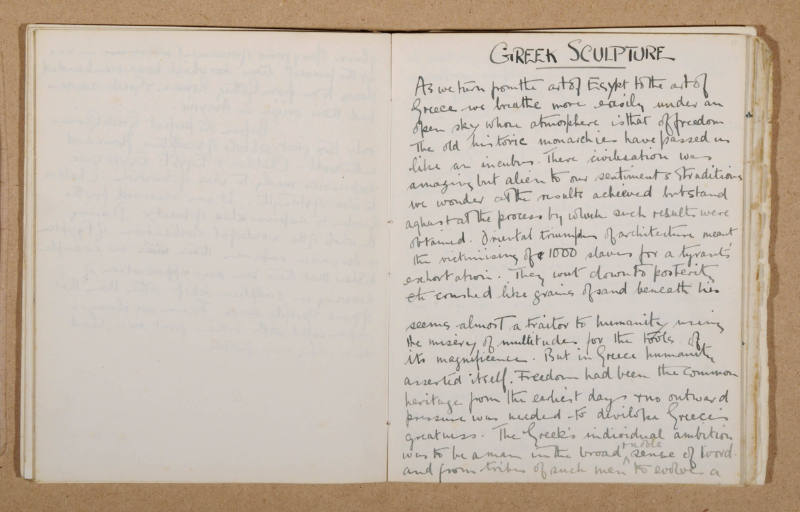 GREEK SCULPTURE
As we turn from the art of Egypt to the art of
Greece we breathe more easily under an
open sky whose atmosphere is that of freedom.
The old historic monarchies have passed us
like an incubus. There civilisation was
amazing but alien to our sentiments & traditions
we wonder at the results achieved but stand
aghast at the process by which such results were
obtained. Oriental triumphs of architecture meant
the victimising of 1000 slaves for a tyrant's
They went down to posterity
crushed like grains of sand beneath his
seems almost a traitor to humanity using
the misery of multitudes for the tools of
its magnificence. But in Greece humanity
asserted itself. Freedom had been the common
heritage from the earliest days & no outward
pressure was needed to develope Greece's
greatness. The Greek's individual ambition
was to be a man in the broad & noble sense of word
and from tribes of such men to evolve a